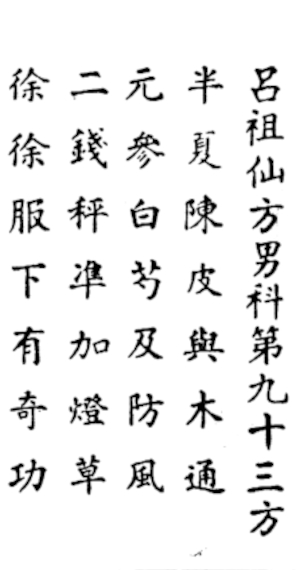 呂祖仙方男科第九十三方
半夏陳皮與木通
元參白芍及防風
二錢秤準加燈草
徐徐服下有奇功